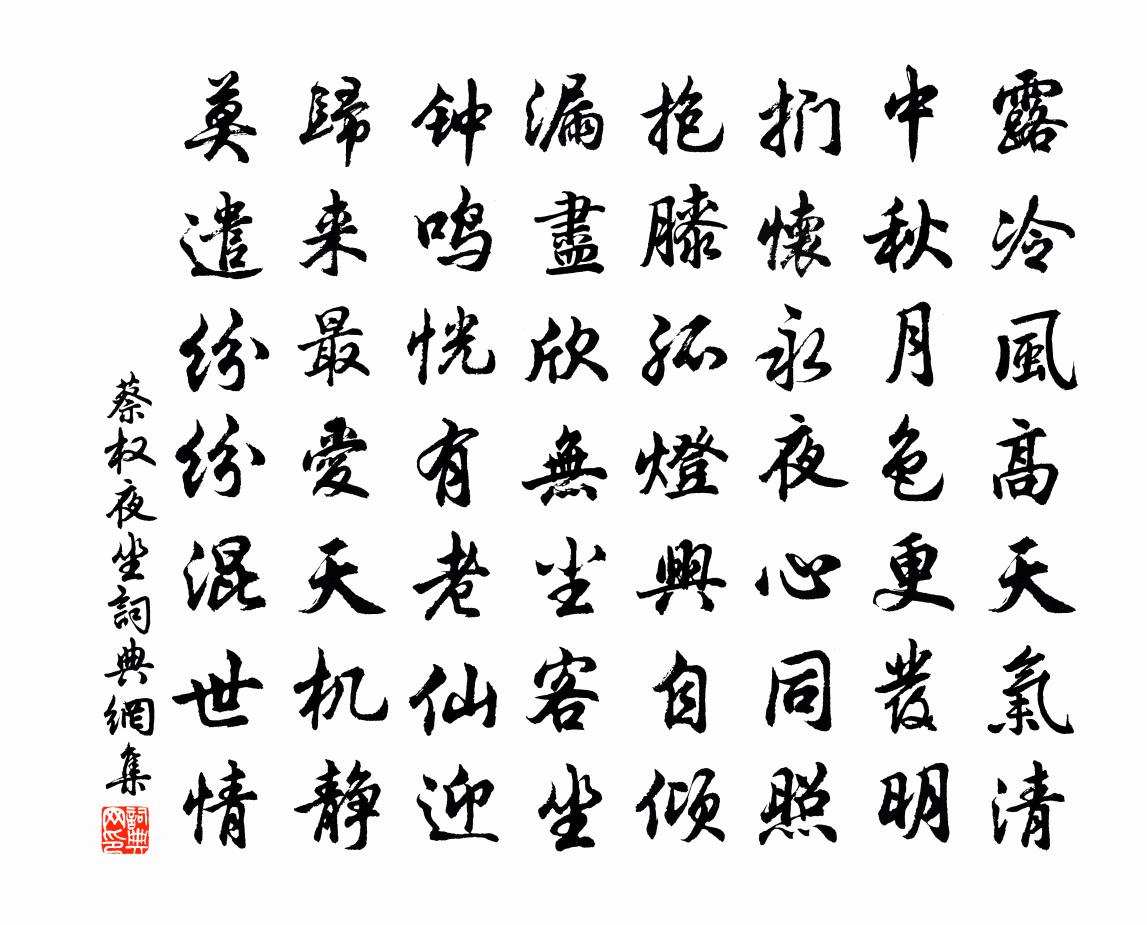 露冷風高天氣清
中秋月色更發明
捫懷永夜心同照
抱膝孤燈興自傾
漏盡欣無塵客坐
钟鸣恍有老仙迎
歸来最愛天机静
莫遣纷纷混世情
蔡权夜坐詞典網集
詞典网印